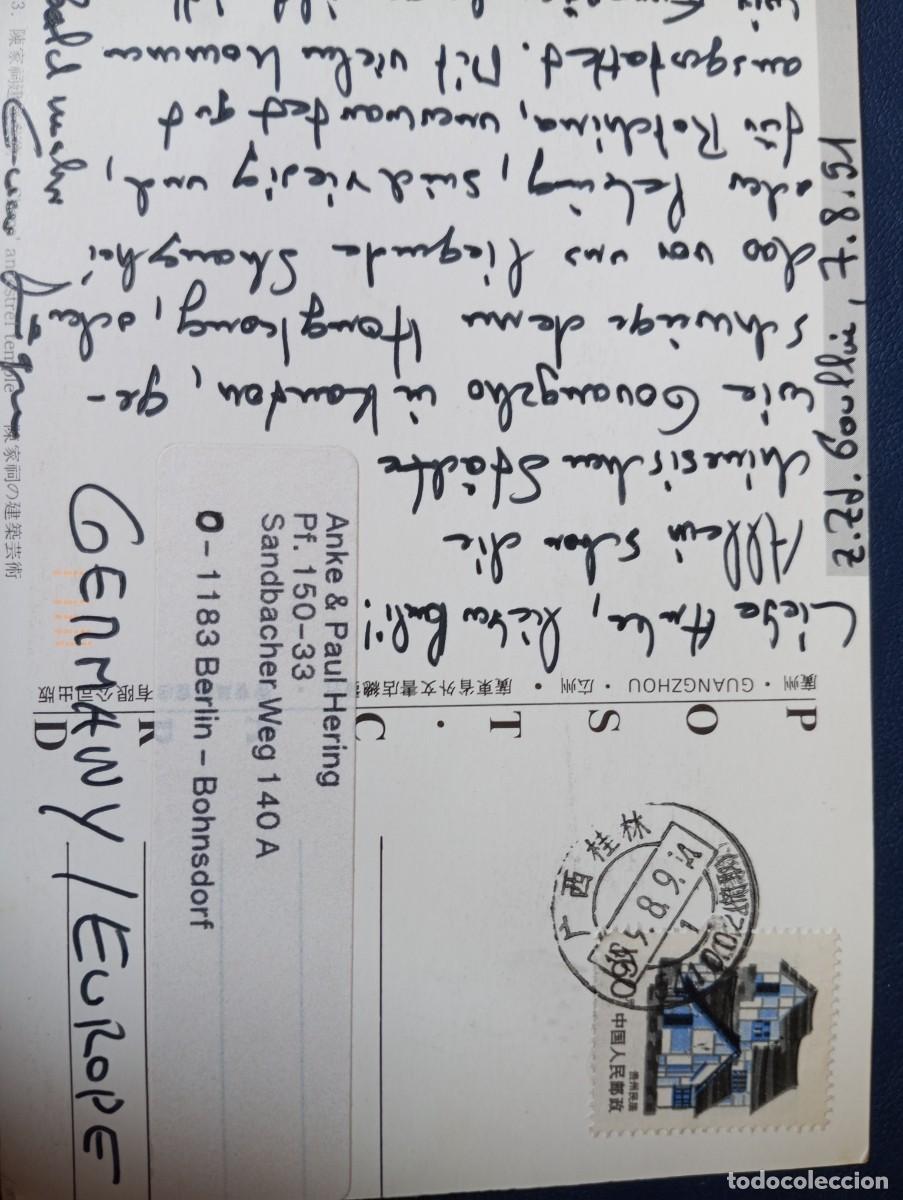 POST CARD
廣州・GUANGZHOU・広州・廣東省外文書店總
有限公司出版
z.Zt. Gouglin, 7.8.91
Liebe Anke, lieber Pauli!
Allein schon die
chinesischen Städte
wie Gouangzho in Kanton, ge-
schweige denn Hongkong, oder
das vor uns liegende Shanghai
oder Peking, sind riesig und,
für Rotchina, unerwartet gut
ausgestattet. Mit vielen
bald mehr
Anke & Paul Hering
Pf. 150-33
Sandbacher Weg 140 A
O - 1183 Berlin - Bohnsdorf
GERMANY / EUROPE
广西桂林
中国人民邮政
贵州民居
3. 陳家祠
ancestral temple
陳家祠の建築芸術
todocoleccion